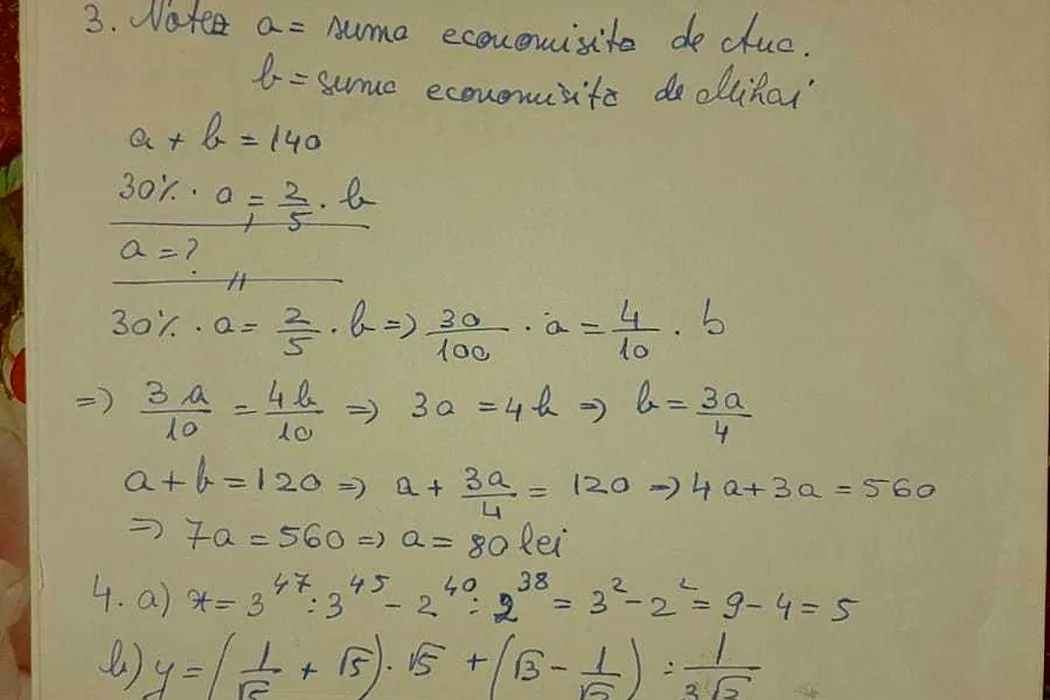 3. Notez a = suma economisita de Ana.
b = suma economisita de Mihai
a + b = 140
30% · a = 2/5 · b
a = ?
30% · a = 2/5 · b => 30/100 · a = 4/10 · b
=> 3a/10 = 4b/10 => 3a = 4b => b = 3a/4
a + b = 120 => a + 3a/4 = 120 => 4a + 3a = 560
=> 7a = 560 => a = 80 lei
4. a) x = 3^47 : 3^45 - 2^40 : 2^38 = 3^2 - 2^2 = 9 - 4 = 5
b) y = (1/√5 + √5) · √5 + (√3 - 1/√3) : 1/3√3